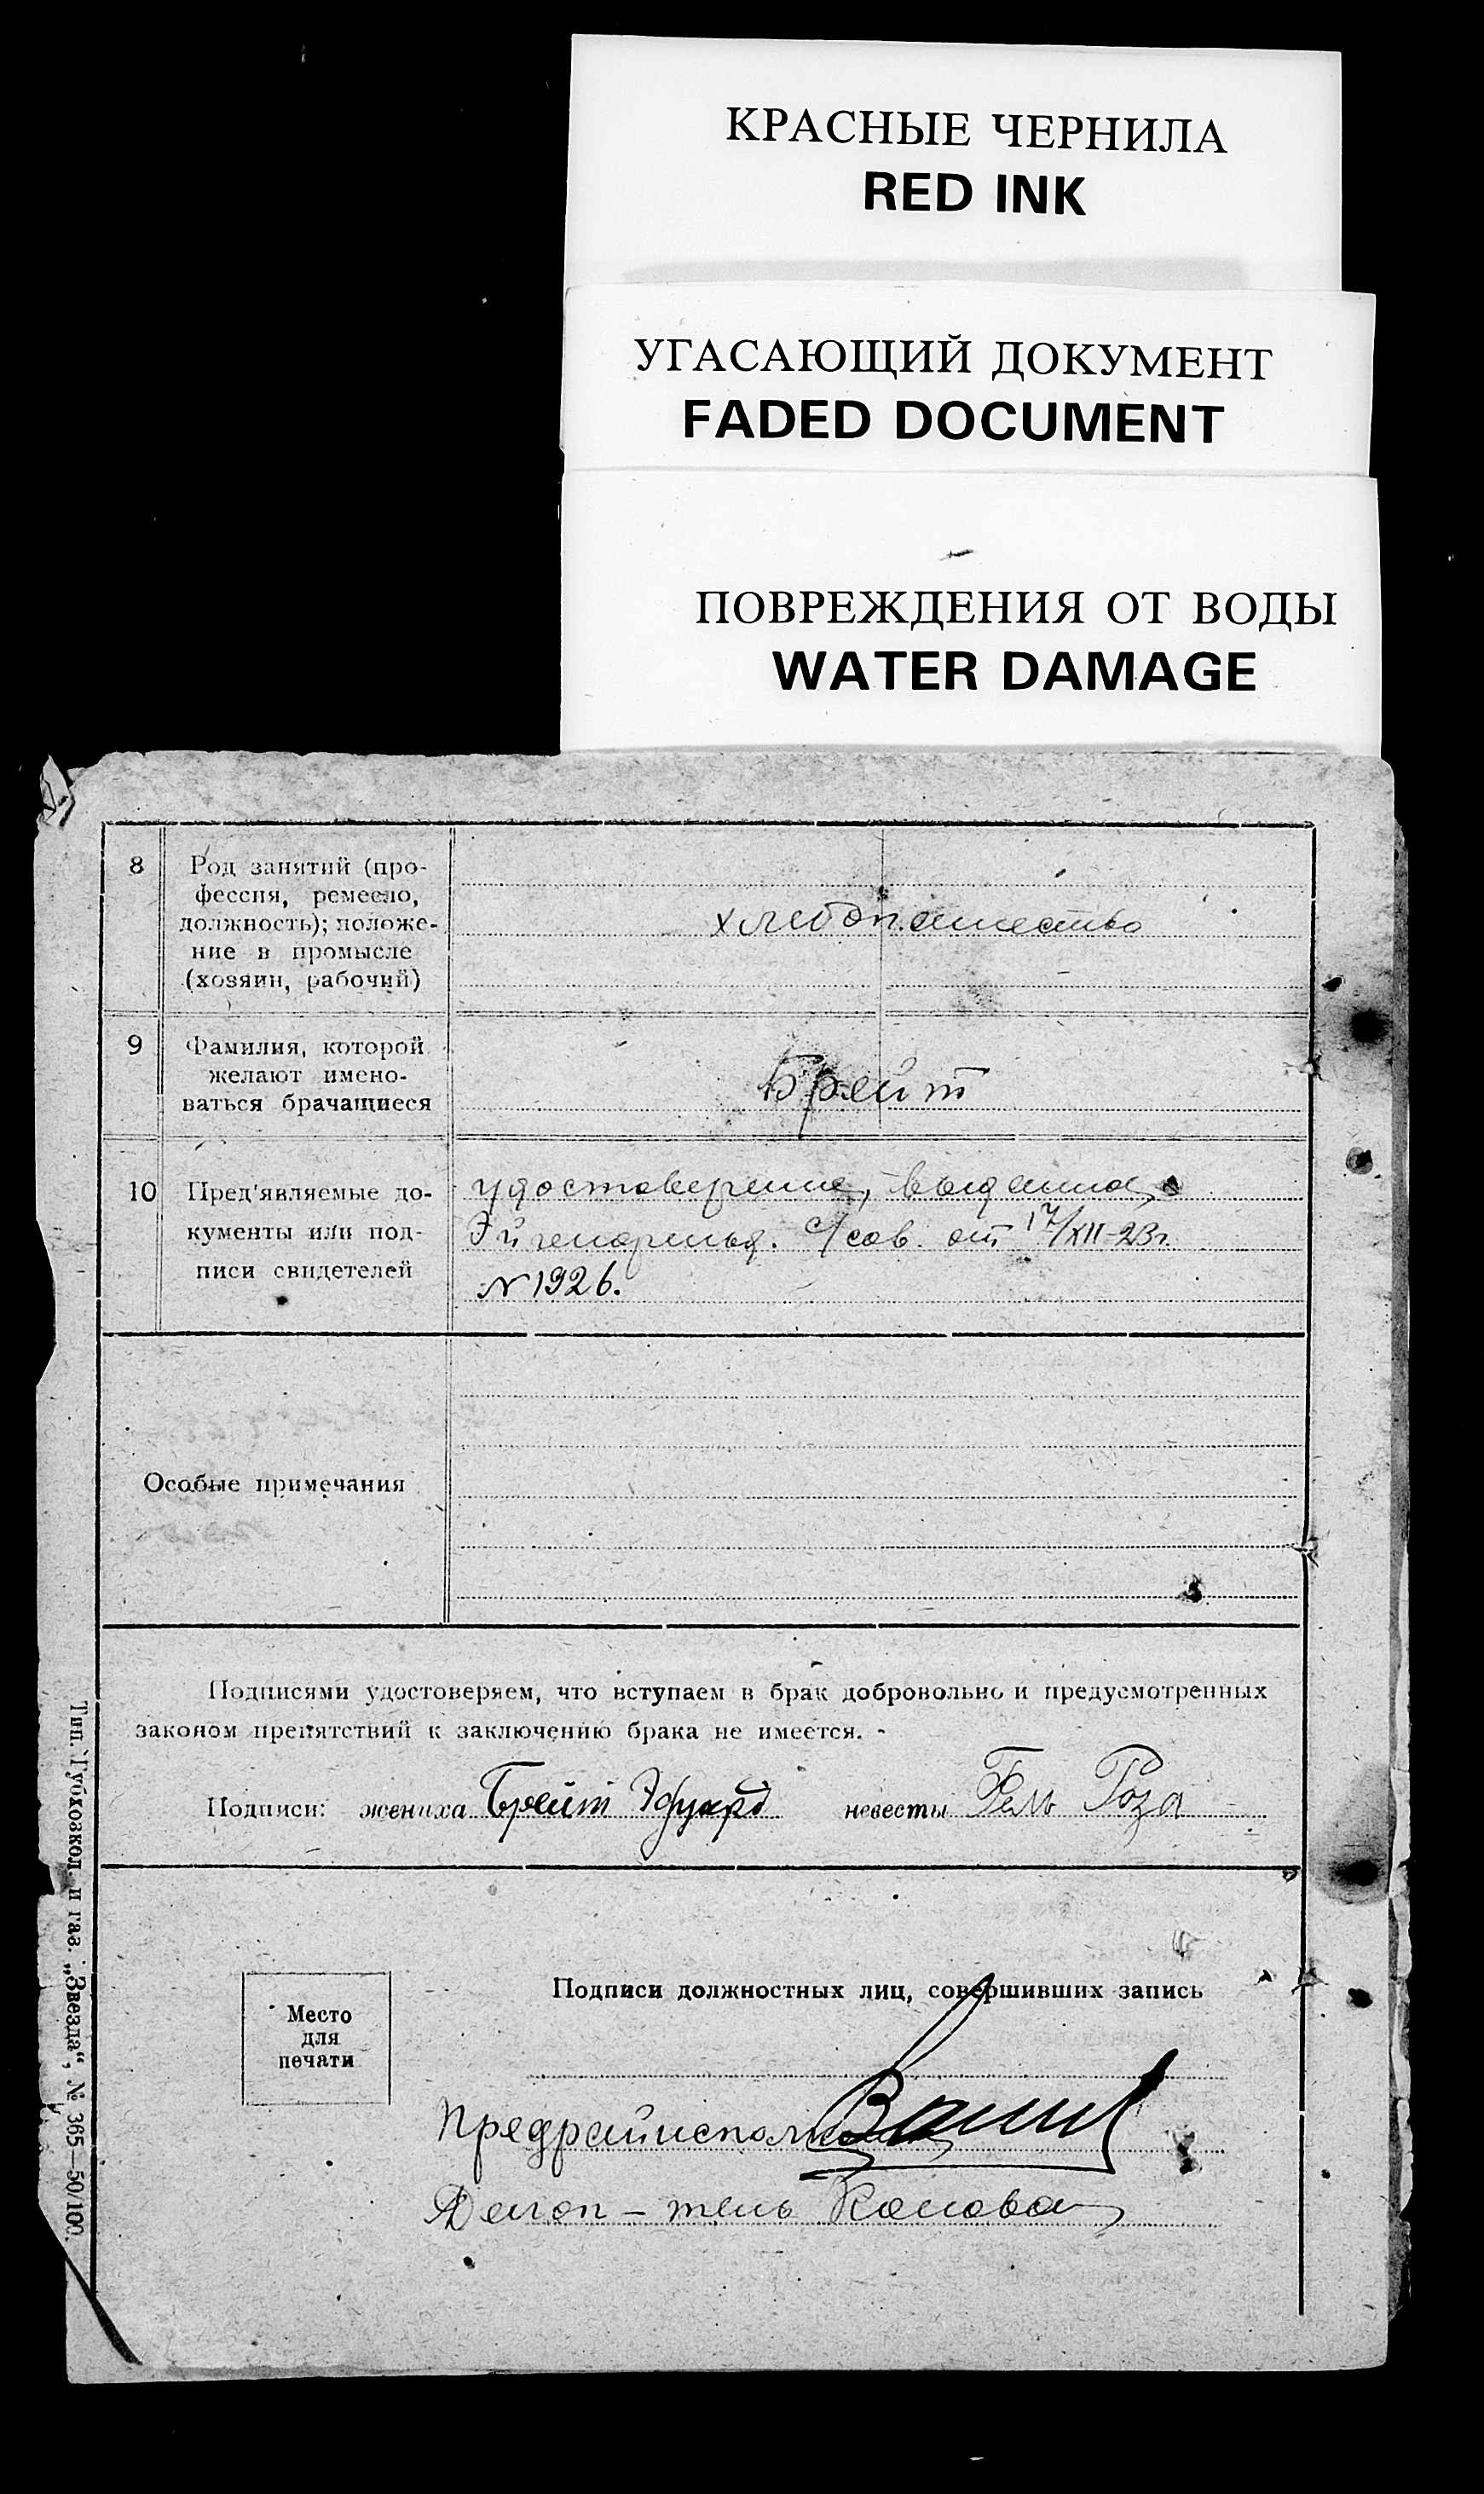 КРАСНЫЕ ЧЕРНИЛА
RED INK
УГАСАЮЩИЙ ДОКУМЕНТ
FADED DOCUMENT
ПОВРЕЖДЕНИЯ ОТ ВОДЫ
WATER DAMAGE
8
Род занятий (про-
фессия, ремесло,
должность); положе-
ние в промысле
(хозяин, рабочий)
хлебопашество
9
Фамилия, которой
желают имено-
ваться брачащиеся
Брейт
10
Пред'являемые до-
кументы или под-
писи свидетелей
удостоверение, выданное
с/сов. от 17/XII-23г.
№ 1926.
Особые примечания
Подписями удостоверяем, что вступаем в брак добровольно и предусмотренных
законом препятствий к заключению брака не имеется.
Подписи: жениха Брейт Эдуард невесты Гель Роза
Место
для
печати
Подписи должностных лиц, совершивших запись
Предрайисполкома
Делоп-тель
Тип. Губхозкол. и газ. „Звезда“, № 365—50/100.